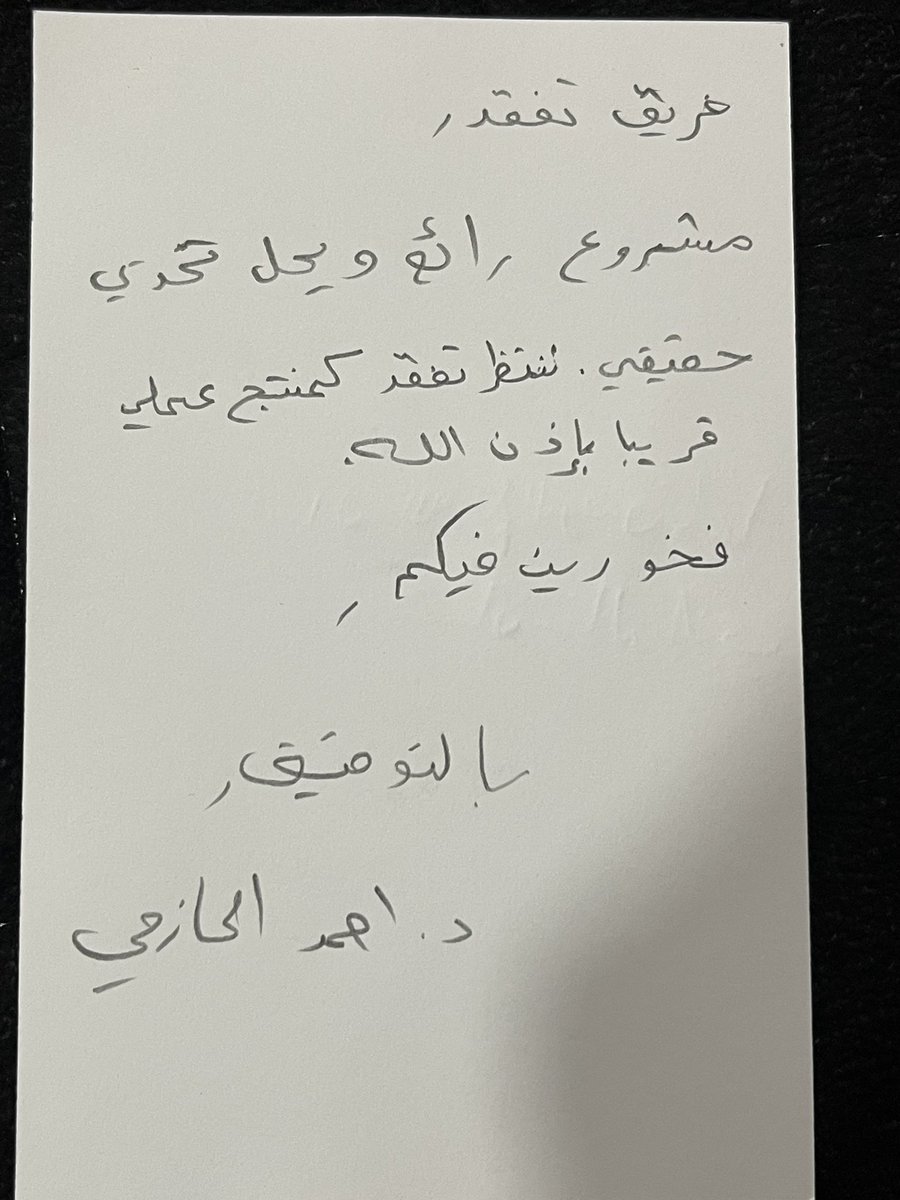 فريق تفقد ,
مشروع رائع ويحل تحدي
حقيقي. ننتظر تفقد كمنتج عملي
قريبا بإذن الله.
فخورين فيكم ,
بالتوفيق ,
د. احمد الحازمي